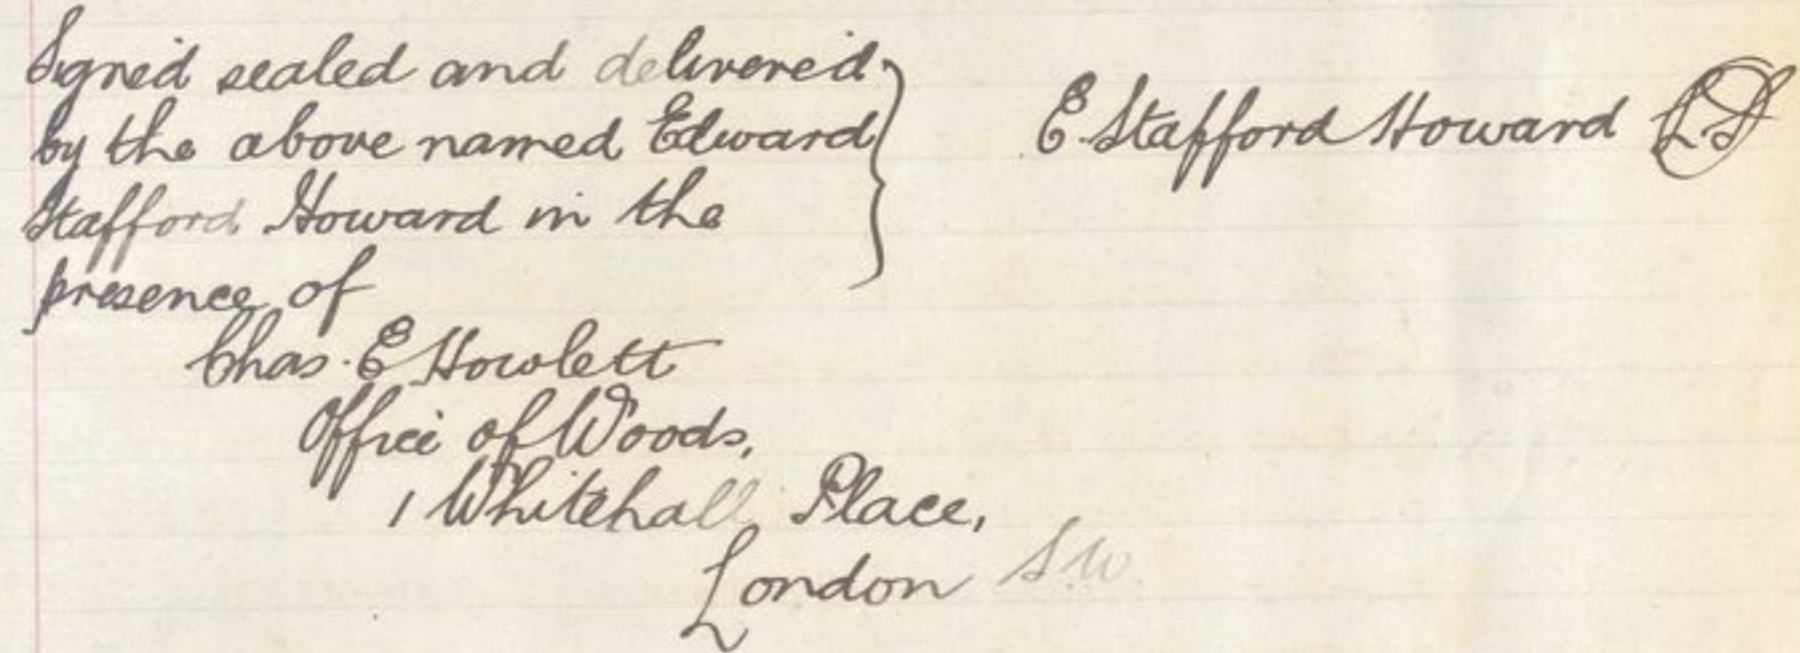 Signed sealed and delivered
by the above named Edward
Stafford Howard in the
presence of
E Stafford Howard LS
Chas. E Howlett
Office of Woods,
1 Whitehall Place,
London S.W.